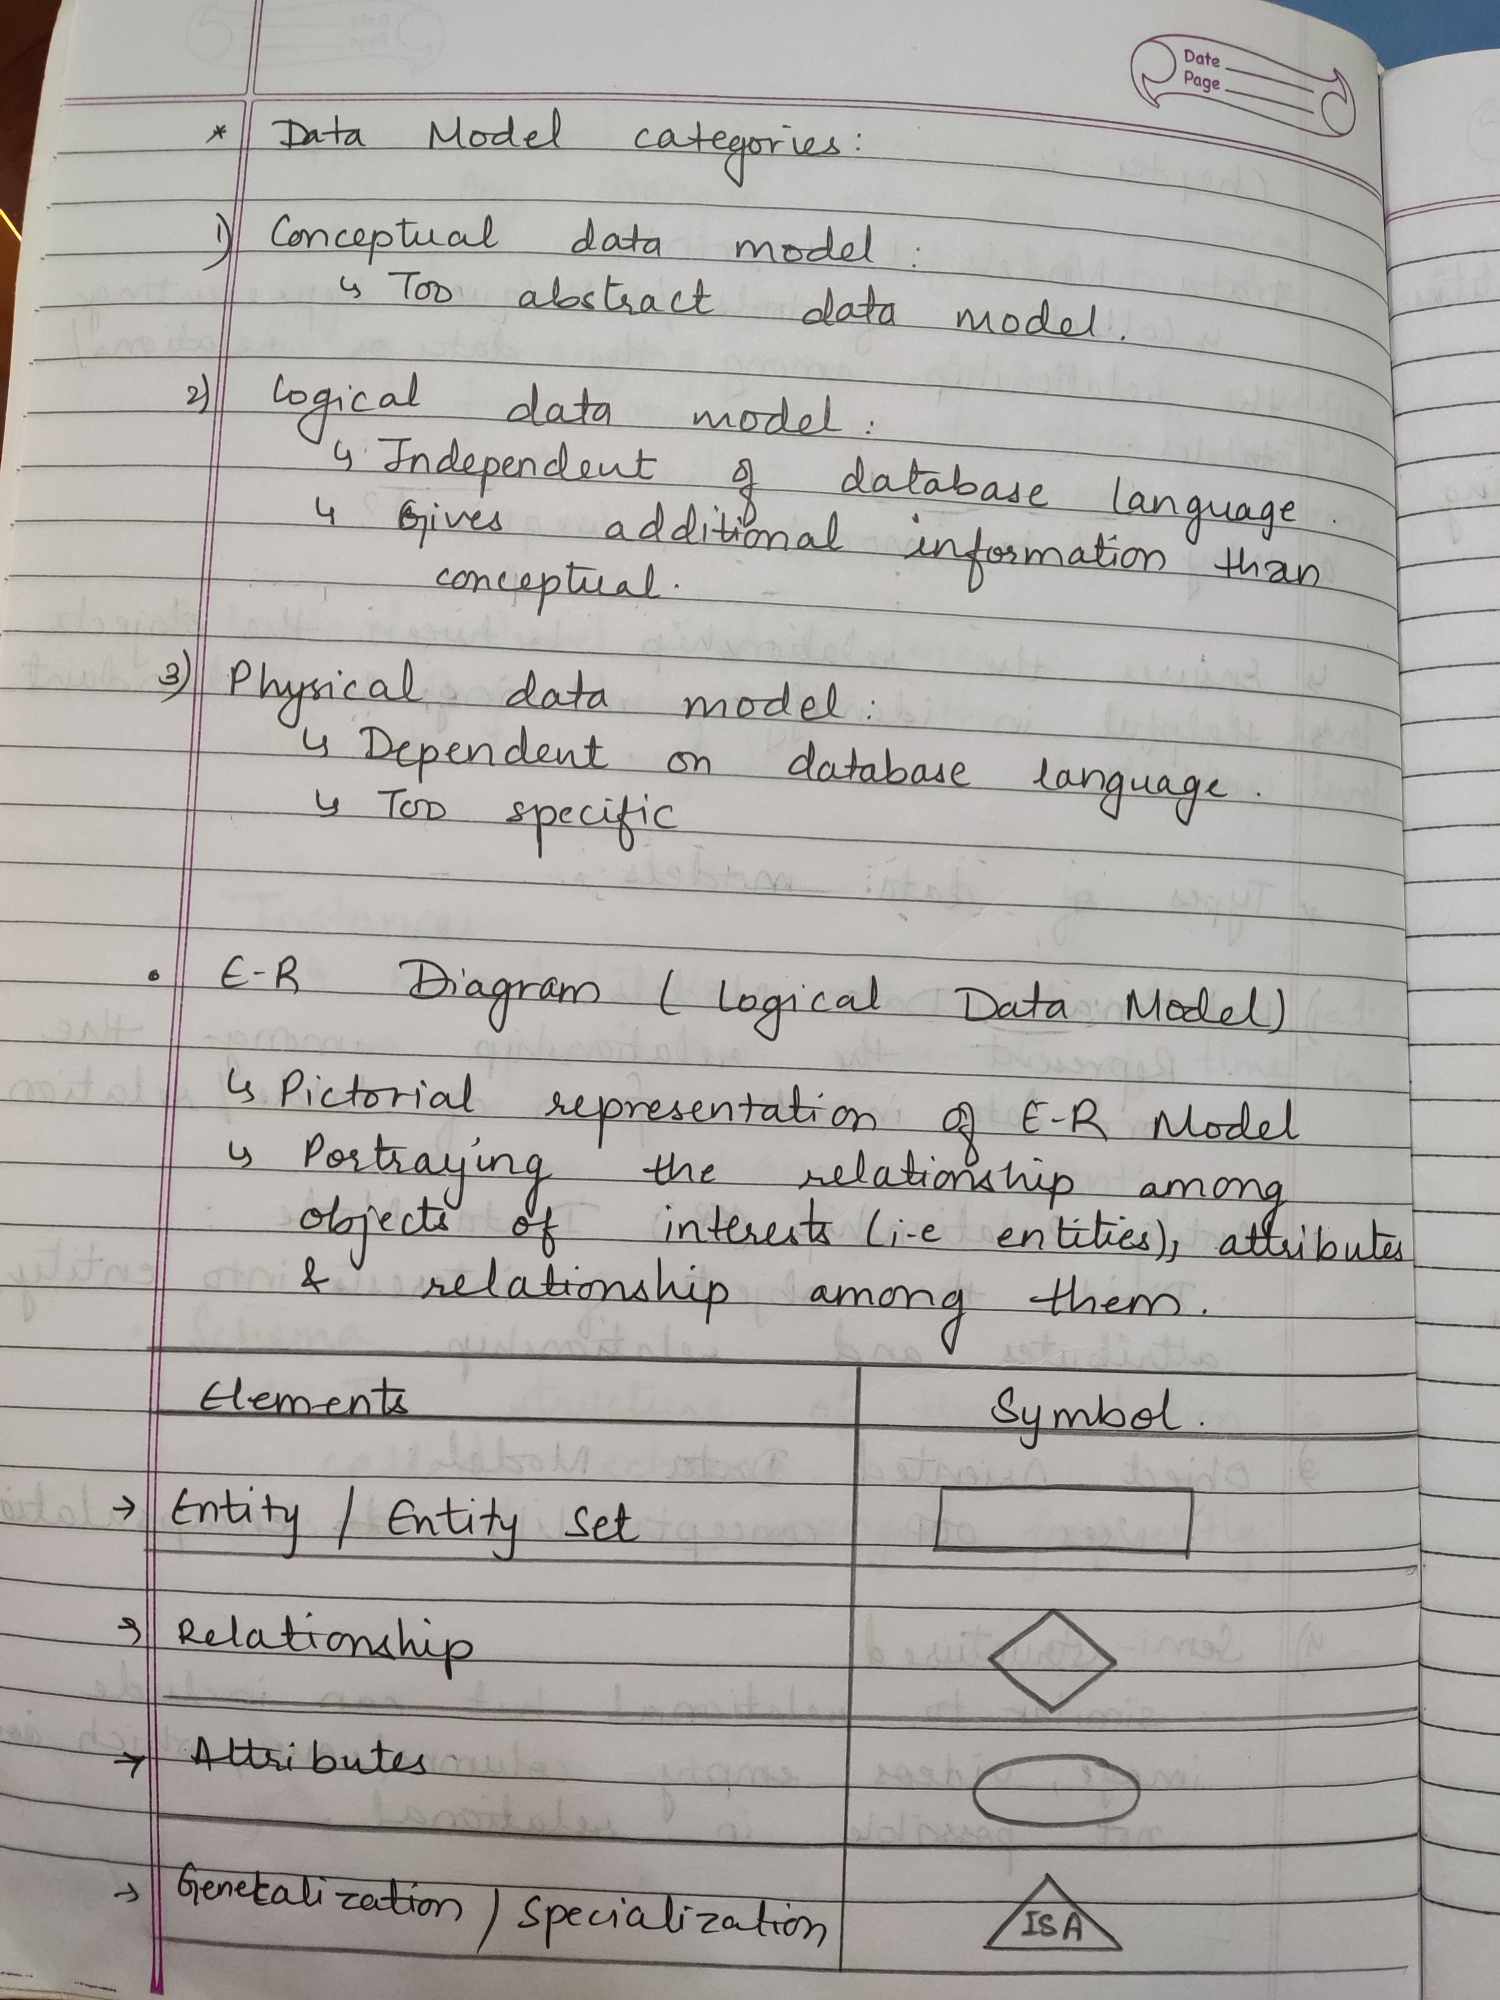 Date
Page
* Data Model categories:
1) Conceptual data model:
↳ Too abstract data model.
2) Logical data model:
↳ Independent of database language.
↳ Gives additional information than
conceptual.
3) Physical data model:
↳ Dependent on database language.
↳ Too specific
• E-R Diagram (Logical Data Model)
↳ Pictorial representation of E-R Model
↳ Portraying the relationship among
objects of interests (i-e entities), attributes
& relationship among them.
Elements Symbol.
→ Entity / Entity Set
→ Relationship
→ Attributes
→ Generalization / Specialization ISA